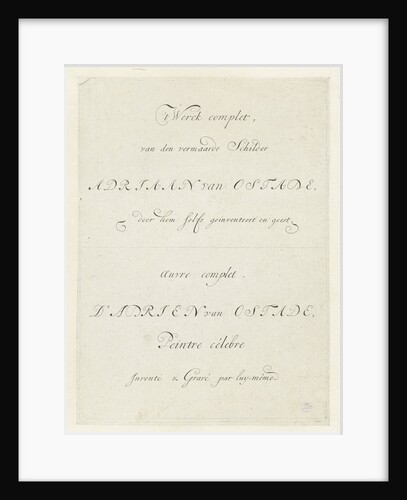 't Werck complet,
van den vermaarde Schilder
ADRIAAN van OSTADE,
door hem selfs geinventeert en geëst
Æuvre complet.
D'ADRIEN van OSTADE,
Peintre célebre
Invente & Gravé par luy-même